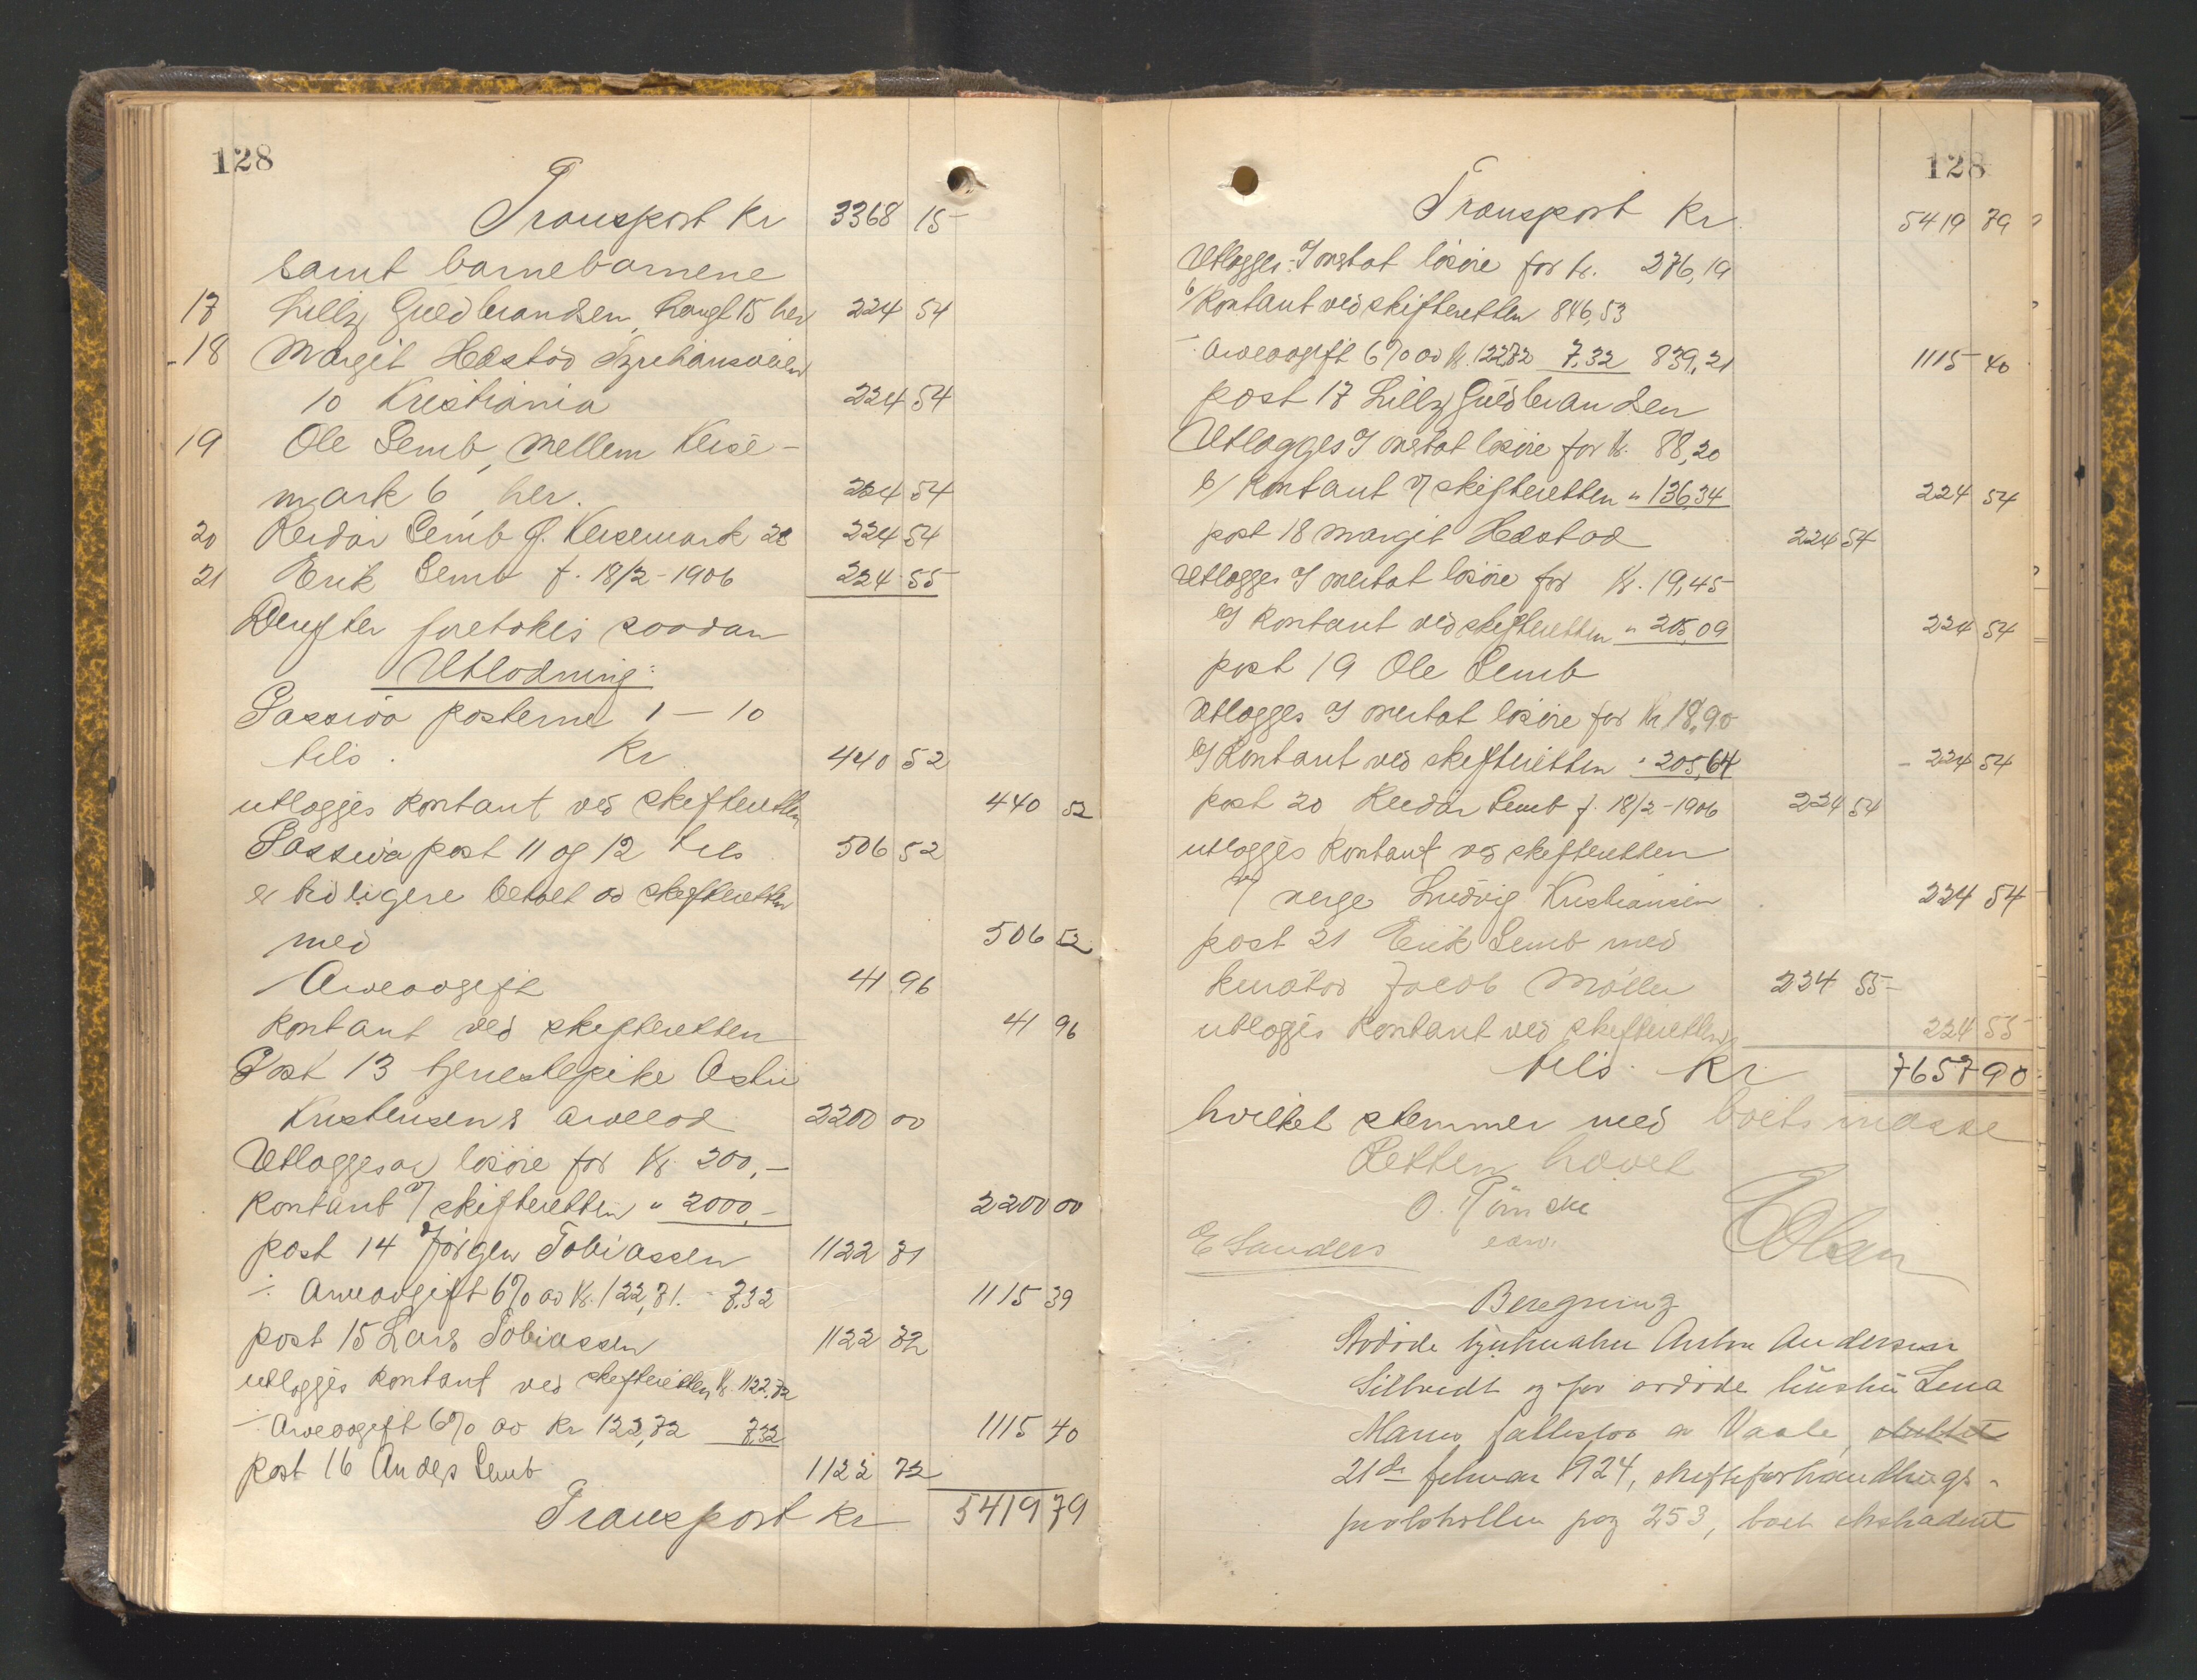 128
Transport kr 3368 15
samt barnebarnene
17 Lilly Guldbrandsen, Haugt 15 her 224 54
18 Margit Hæstöd
10 Kristiania 224 54
19 Ole Semb, Mellem Keise-
mark 6, her. 224 54
20 Reidar Semb Ö. Keisemark 28 224 54
21 Erik Semb f. 18/2-1906 224 55
Derefter foretokes saadan
Utlodning:
Passiva posterne 1 – 10
tils. kr 440 52
utlægges kontant ved skifteretten 440 52
Passiva post 11 og 12 tils 506 52
er tidligere betalt av skifteretten
med 506 52
Arveavgift 41 96
kontant ved skifteretten 41 96
Post 13 tjenestepike
Kristensens arvelod 2200 00
Utlægges av løsöre for kr. 200,-
kontant v/ skifteretten " 2000,- 2200 00
post 14 Jörgen Tobiassen 1122 71
÷ Arveavgift 6% av kr. 122,71. - 7,32 1115 39
post 15 Lars Tobiassen 1122 72
utlægges kontant ved skifteretten kr. 1122,72
÷ Arveavgift 6% av kr 122,72 7,32 1115 40
post 16 Anders Semb 1122 72
Transport kr 5419 79
128
Transport kr. 5419 79
Utlægges: I mottat løsöre for kr. 276,19
b/ kontant ved skifteretten 846,53
÷ Arveavgift 6% av kr. 122,72 7,32 839,21 1115 40
post 17 Lilly Guldbrandsen
Utlægges I mottat løsöre for kr. 88,20
b/ kontant v/ skifteretten " 136,34 224 54
post 18 Margit Hæstad 224 54
Utlægges I mottat løsöre for kr. 19,45
b/ kontant ved skifteretten " 205,09 224 54
post 19 Ole Semb
Utlægges I mottat løsöre for kr 18,90
b/ kontant ved skifteretten " 205,64 224 54
post 20 Reidar Semb f. 18/2-1906 224 54
utlægges kontant ved skifteretten
v/ verge Ludvig Kristiansen 224 54
post 21 Erik Semb med
kurator Jacob Möller 224 55
utlægges kontant ved skifteretten 224 55
tils. kr. 7657 90
hvilket stemmer med boets masse
Retten hævet
E Sanders
Beregning
Avdöde Anton Andersen
og for avdöde hustru Lena
Marie fællesbo av Vaale, sluttet
21de februar 1924, skifteforhandlings-
protokollen pag 253, boets